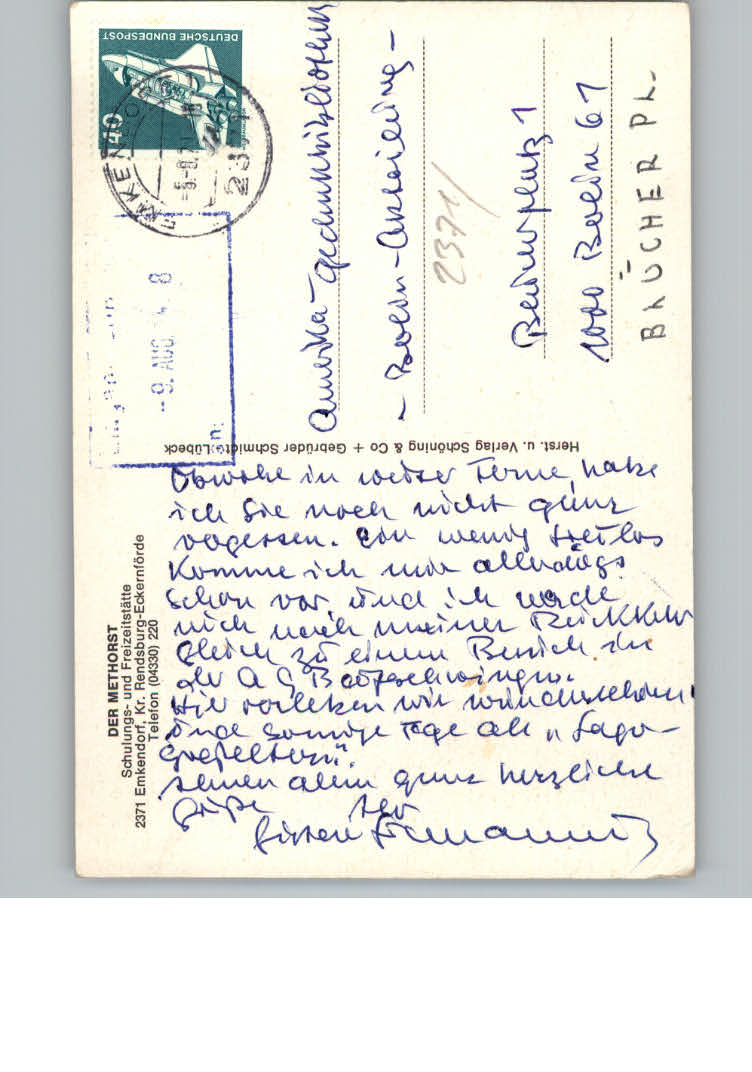 DER METHORST
Schulungs- und Freizeitstätte
2371 Emkendorf, Kr. Rendsburg-Eckernförde
Telefon (04330) 220
Obwohl in weiter Ferne, habe
ich Sie noch nicht ganz
vergessen. Ein wenig
komme ich mir allerdings
schon vor, und ich werde
mich nach meiner Rückkehr
gleich zu einem Besuch in
der A G
Hier verleben wir wunderschöne
und sonnige Tage als "Lager-
Ihnen allen ganz herzliche
Grüße Ihr
Herst. u. Verlag Schöning & Co + Gebrüder Schmidt, Lübeck
DEUTSCHE BUNDESPOST
40
EMKENDORF
23
-9. AUG.
8
Amerika-Gedenkbibliothek
- Berlin-Abteilung -
2371/
Blücherplatz 1
1000 Berlin 61
BLÜCHERPL.